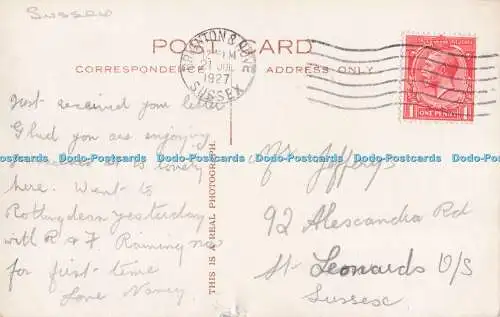 Sussex
POST CARD
CORRESPONDENCE
ADDRESS ONLY
BRIGHTON & HOVE
21 JUL
1927
SUSSEX
ONE PENNY
Just received your letter
Glad you are enjoying
it is lovely
here. Went to
Rottingdean yesterday
with R. & F. Raining now
for first time
Love Nancy
THIS IS A REAL PHOTOGRAPH.
Jefferys
92 Alescandra Rd
St Leonards O/S
Sussex
Dodo-Postcards Dodo-Postcards Dodo-Postcards Dodo-Postcards Dodo-Postcards Dodo-Postcards